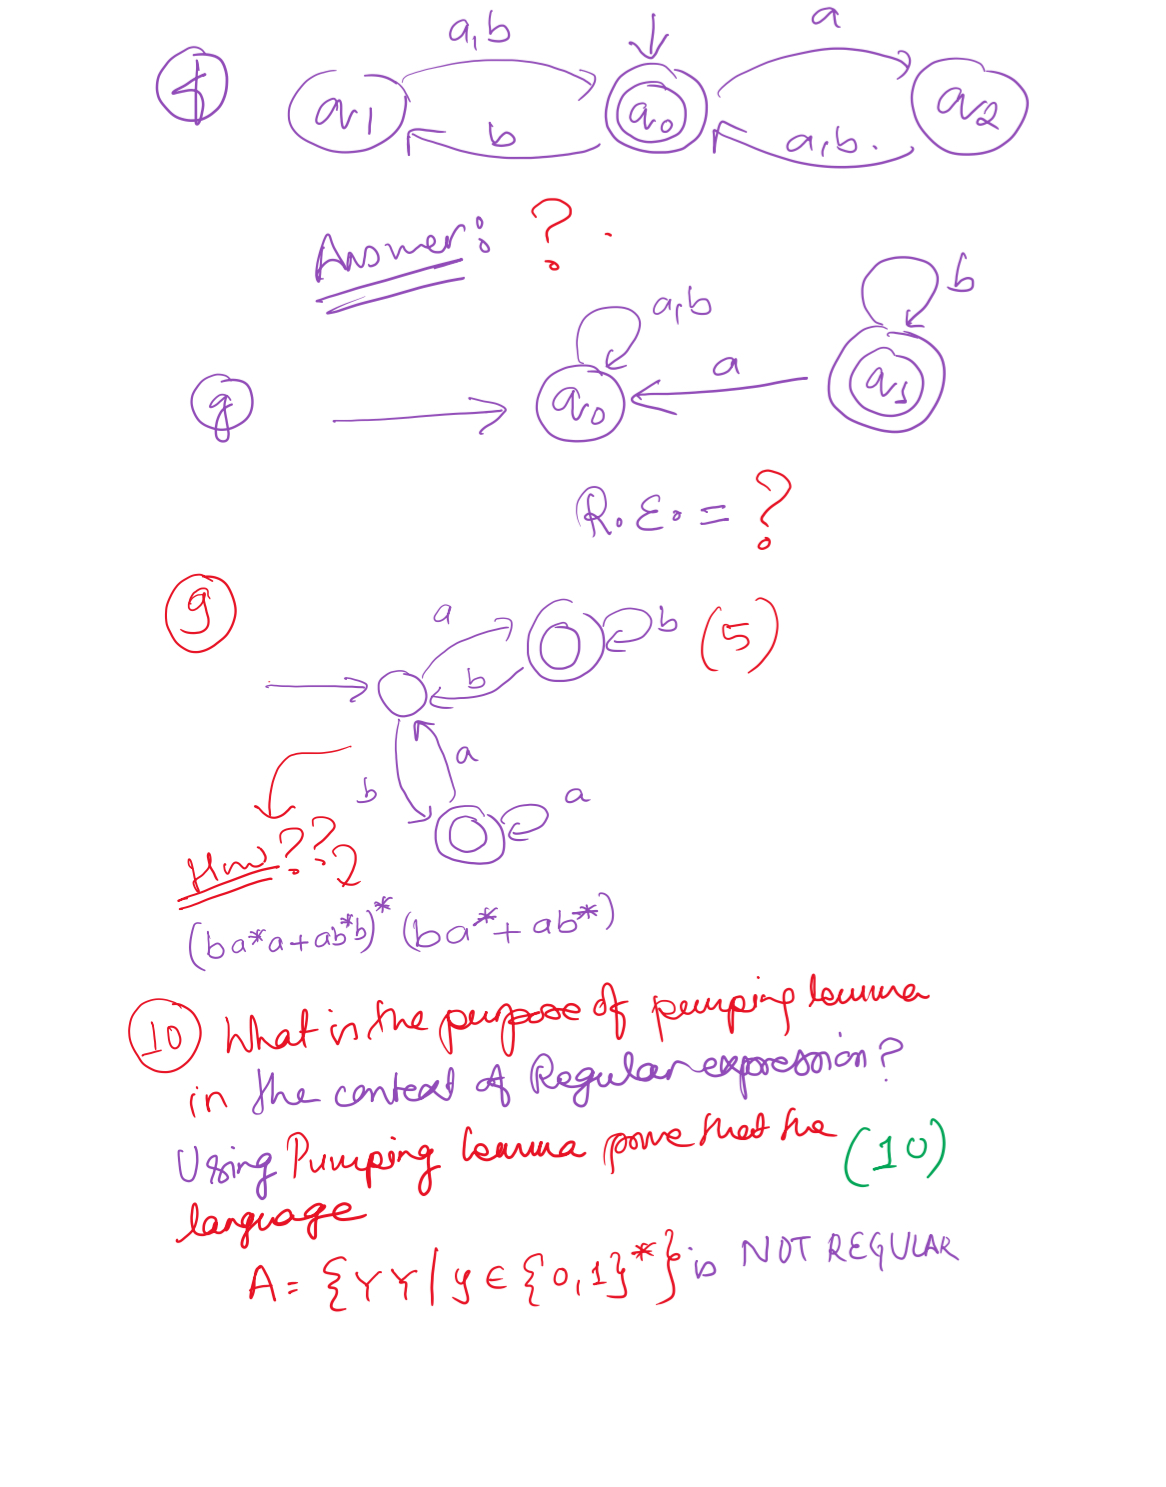 f
a,b
a
q1
q0
q2
b
a,b.
Answer: ?.
b
a,b
a
g
q0
q1
R.E. = ?
9
a
b
(5)
b
a
b
a
How???
(ba*a+ab*b)* (ba*+ab*)
10 What is the purpose of pumping lemma
in the context of Regular expression?
Using Pumping lemma prove that the
(10)
language
A = {YY | y ∈ {0,1}*} is NOT REGULAR